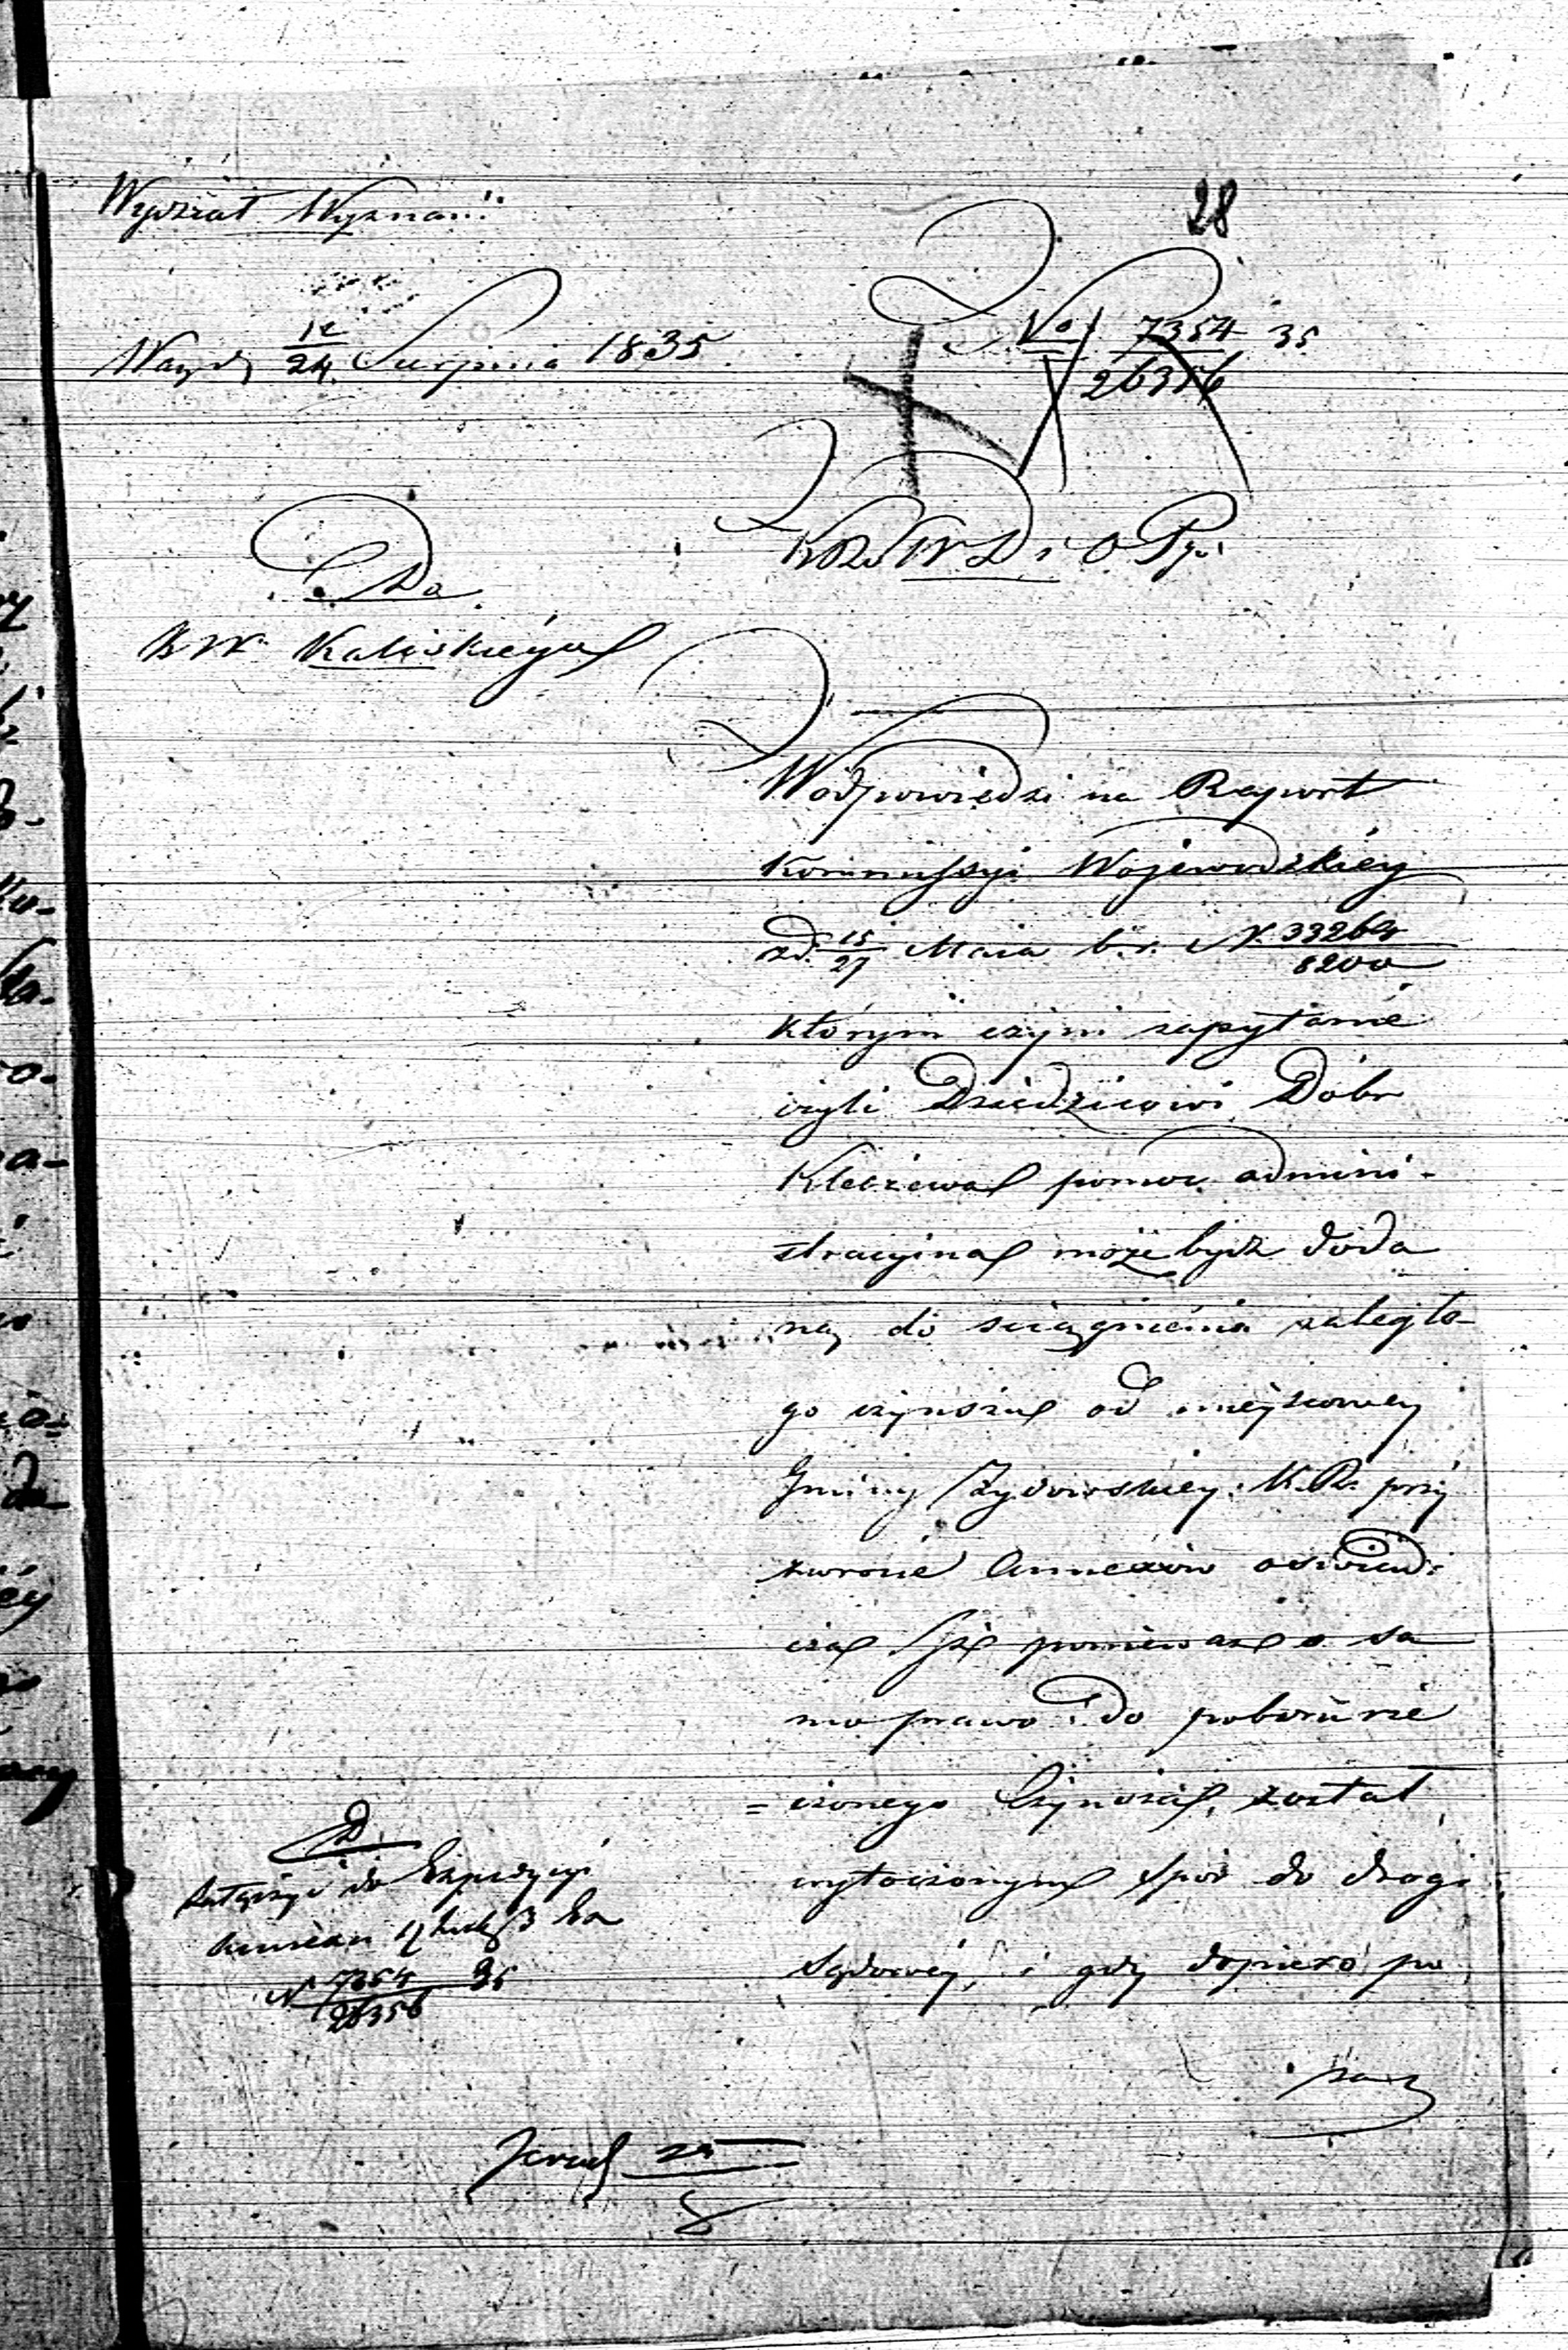 28
Wydział Wyznań
No 7354 35
26356
Warsz 12/24 Sierpnia 1835
KRSW D i O Pgo
Do
K W Kaliskiego
W odpowiedzi na Raport
Kommissyi Wojewodzkiey
z d. 15/27 Maia b. r. N. 33264
8200
którym czyni zapytanie
czyli Dziedzicowi Dóbr
Kleczewa pomoc admini-
stracyina może bydz doda
ną do sciągnienia zaległe-
go czynszu od mieyscowey
Gminy Żydowskiey. K. R. przy
zwrocie Annexów oswiad-
cza iż ponieważ o sa
mo prawo do poboru rze
= czonego Czynszu, został
wytoczonym spór do drogi
Sądowéy, i gdy dopiero po
D.
do Expedycyi
N 7354 35
26356